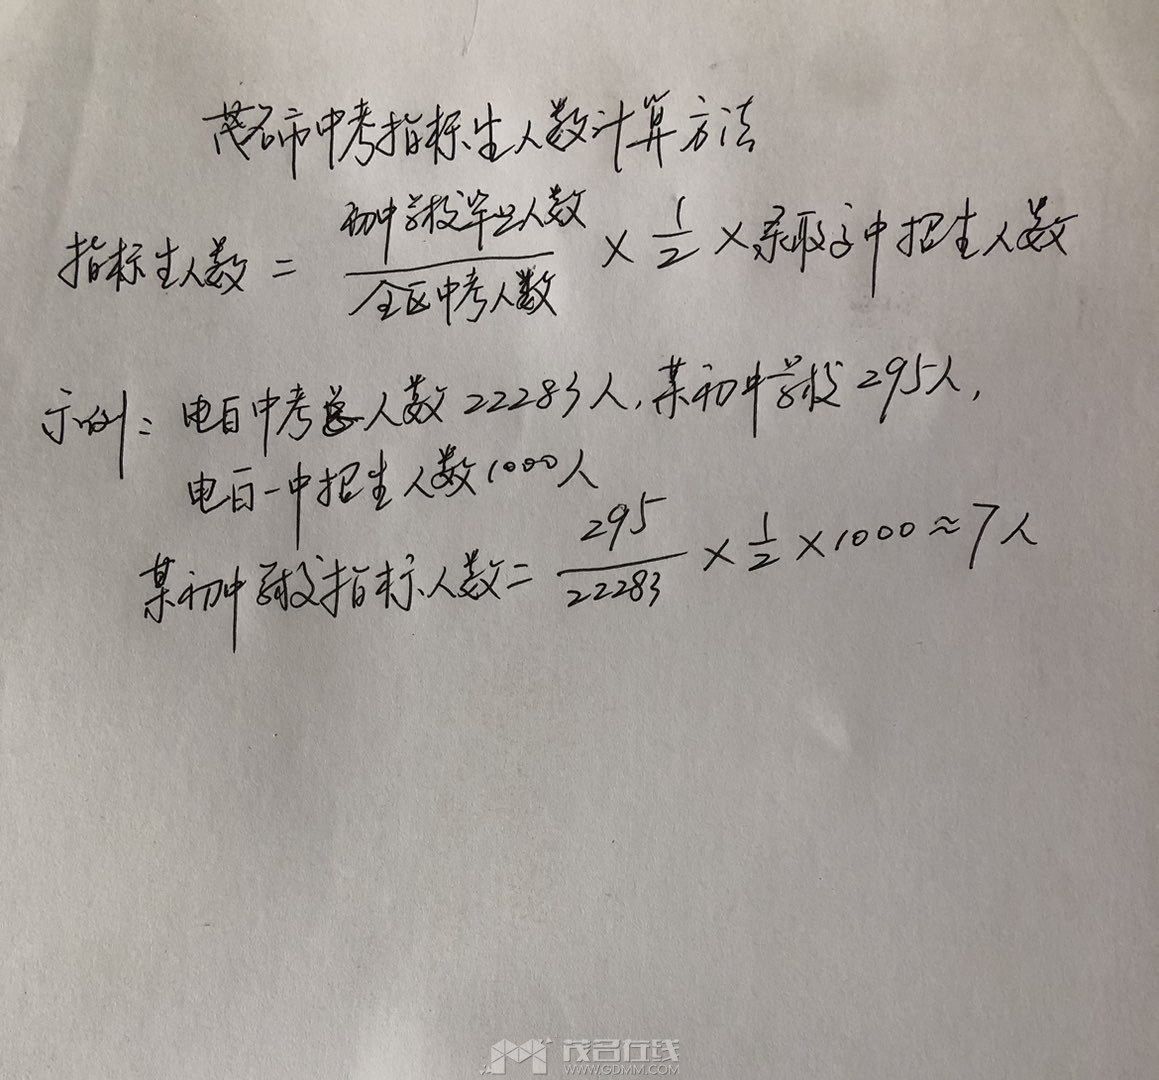 茂名市中考指标生人数计算方法
指标生人数 = 初中学校毕业人数 / 全区中考人数 × 1/2 × 录取高中招生人数
示例: 电白中考总人数22283人,某初中学校295人,
电白一中招生人数1000人
某初中学校指标人数 = 295 / 22283 × 1/2 × 1000 ≈ 7人
茂名在线
WWW.GDMM.COM